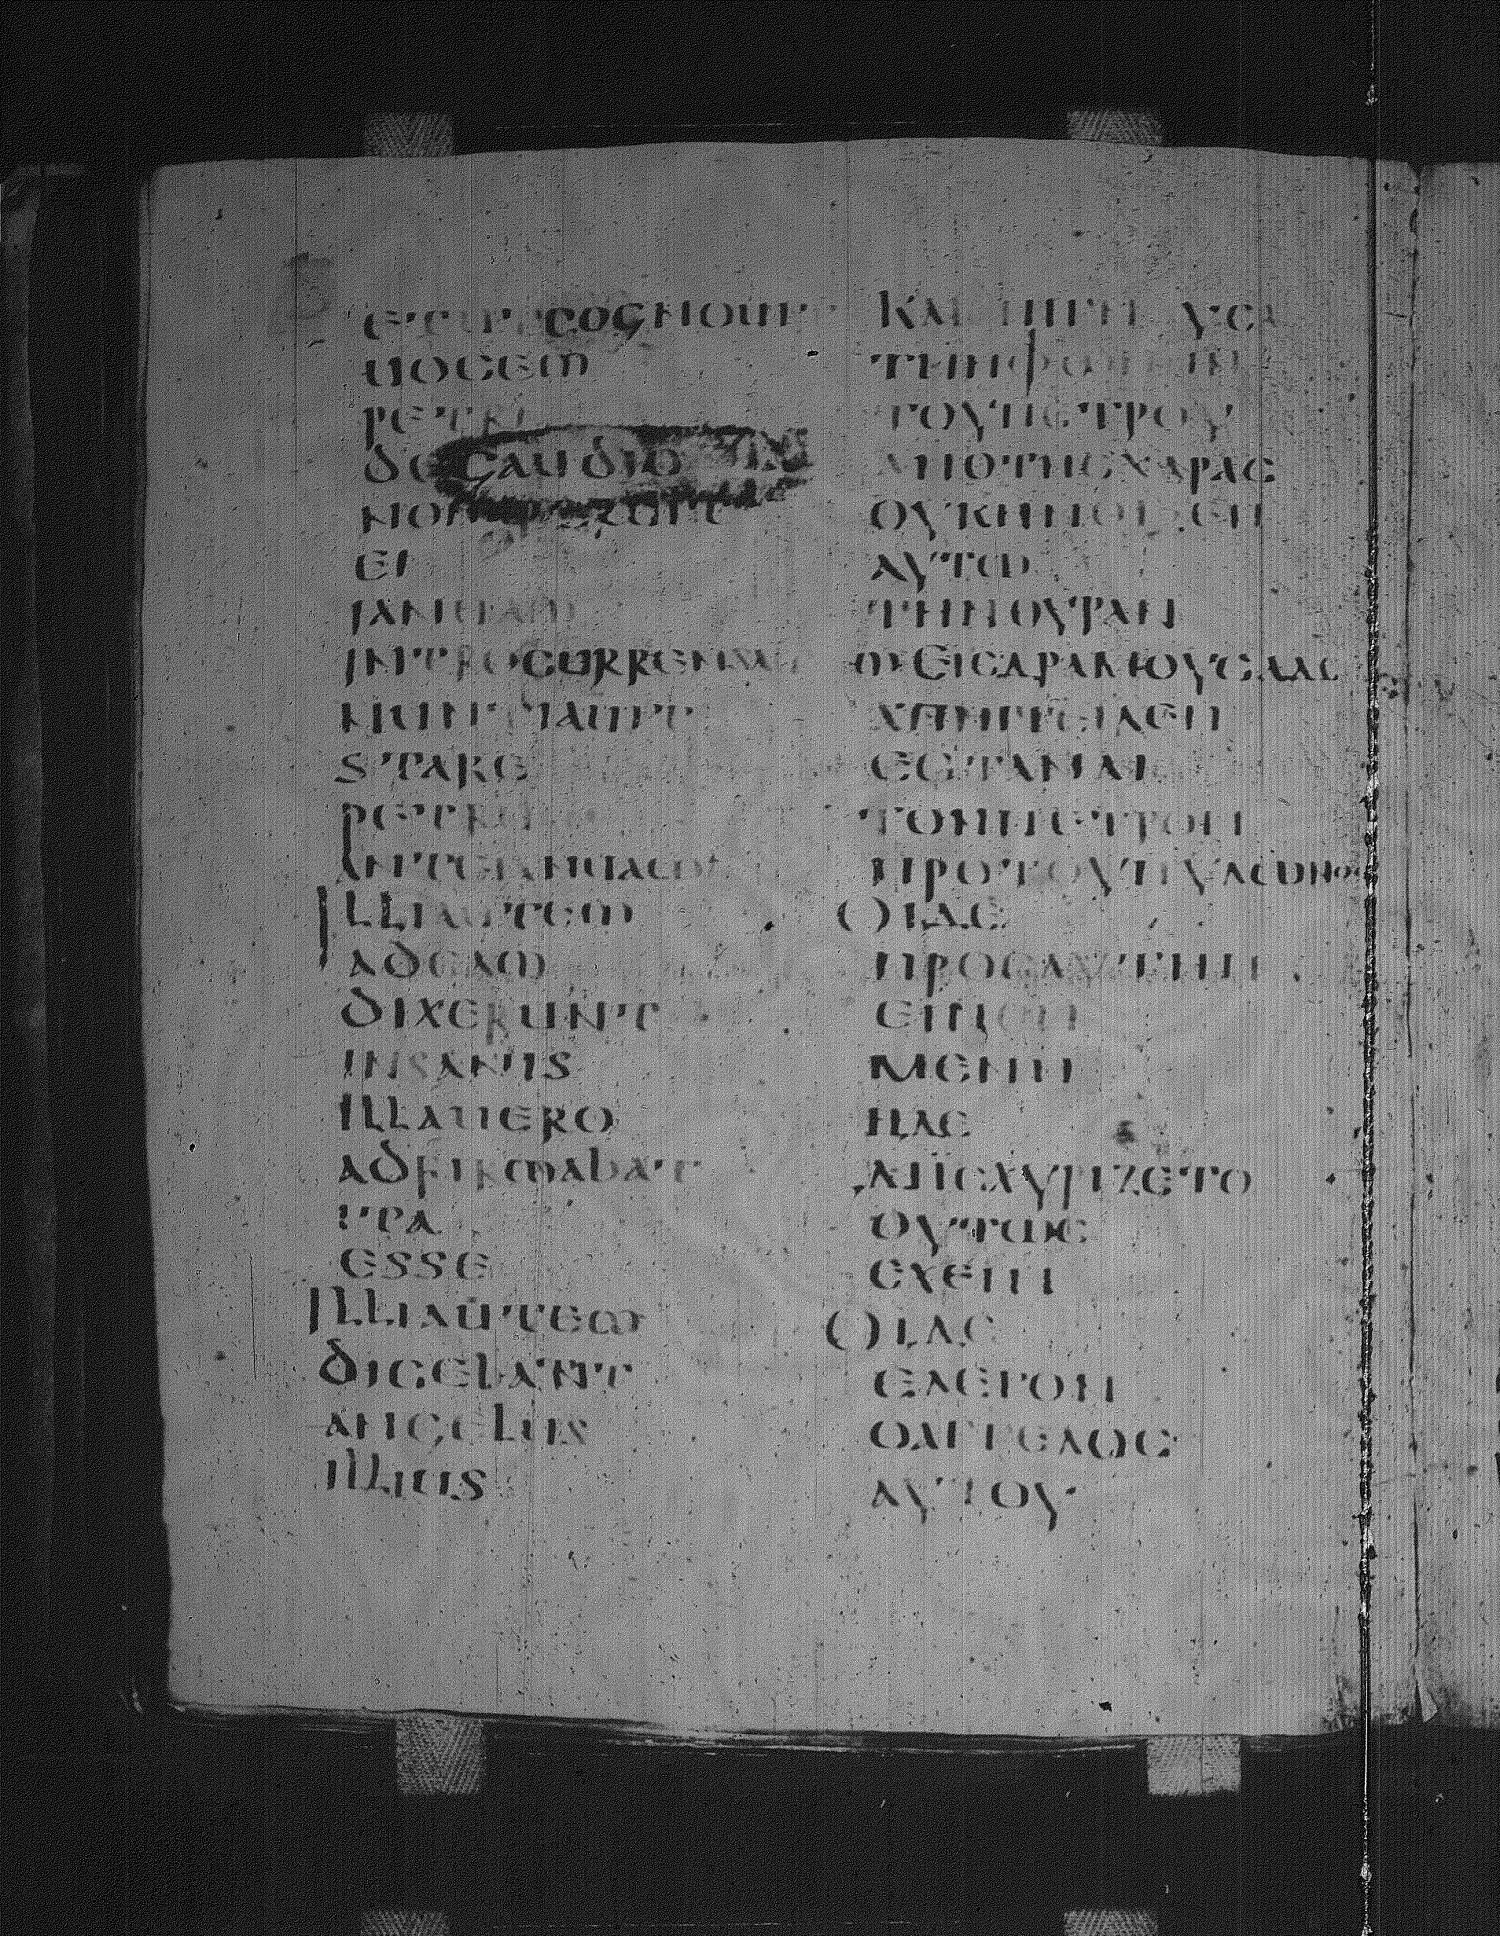 ετ υτ COGNOUIT
UOCEM
PETRI
DE GAUDIO
NON
EI
IANUAM
INTROCURRENS
NUNTIAUIT
STARE
PETRUM
ANTE IANUAM
ILLI AUTEM
AD EAM
DIXERUNT
INSANIS
ILLA UERO
ADFIRMABAT
ITA
ESSE
ILLI AUTEM
DICEBANT
ANGELUS
ILLIUS
ΚΑΙ
ΤΗΝ ΦΩΝΗΝ
ΤΟΥ ΠΕΤΡΟΥ
ΑΠΟ ΤΗC ΧΑΡΑC
ΟΥΚ ΗΝΟΙΞΕΝ
ΑΥΤΩ
ΤΗΝ ΘΥΡΑΝ
ΕΙCΔΡΑΜΟΥCΑ ΔΕ
ΑΠΗΓΓΕΙΛΕΝ
ΕCΤΑΝΑΙ
ΤΟΝ ΠΕΤΡΟΝ
ΠΡΟ ΤΟΥ ΠΥΛΩΝΟC
ΟΙ ΔΕ
ΠΡΟC ΑΥΤΗΝ
ΕΙΠΟΝ
ΜΕΝΗ
Η ΔΕ
ΔΙΙCΧΥΡΙΖΕΤΟ
ΟΥΤΩC
ΕΧΕΙΝ
ΟΙ ΔΕ
ΕΛΕΓΟΝ
Ο ΑΓΓΕΛΟC
ΑΥΤΟΥ·